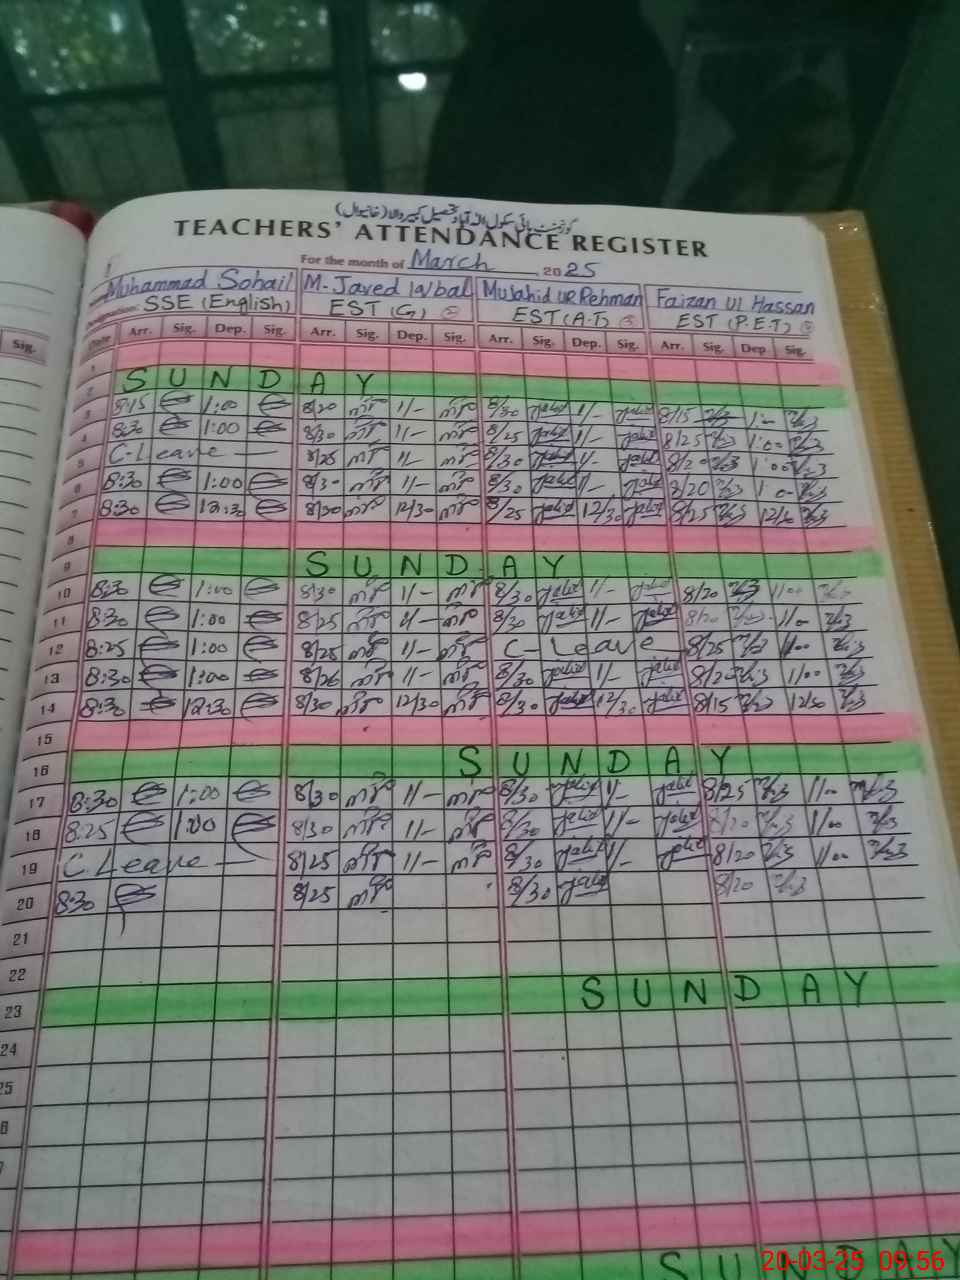 گورنمنٹ ہائی سکول اللہ آباد تحصیل کبیروالا (خانیوال)
TEACHERS' ATTENDANCE REGISTER
For the month of March 2025
Muhammad Sohail M. Javed Iqbal Mujahid UR Rehman Faizan Ul Hassan
Designation: SSE (English) EST (G) EST (A.T) EST (P.E.T)
Date Arr. Sig. Dep. Sig. Arr. Sig. Dep. Sig. Arr. Sig. Dep. Sig. Arr. Sig. Dep Sig.
Sig.
1
2 SUNDAY
3 8:15 1:00 8/20 1/- 8/30 1/- 8/15 1:00
4 8:30 1:00 8/30 1/- 8/25 1/- 8/25 1:00
5 C-Leave — 8/25 1/- 8/30 1/- 8/20 1:00
6 8:30 1:00 8/30 1/- 8/30 1/- 8/20 1:00
7 8:30 12:30 8/30 12/30 8/25 12/30 8/25
8
9 SUNDAY
10 8:30 1:00 8/30 1/- 8/30 1/- 8/20 1/00
11 8:30 1:00 8/25 1/- 8/30 1/- 8/20 1/00
12 8:25 1:00 8/25 1/- C-Leave 8/25 1/00
13 8:30 1:00 8/26 1/- 8/30 1/- 8/20 1/00
14 8:30 12:30 8/30 12/30 8/30 12/30 8/15 12/30
15
16 SUNDAY
17 8:30 1:00 8/30 1/- 8/30 1/- 8/25 1/00
18 8:25 1:00 8/30 1/- 8/30 1/- 8/20 1/00
19 C.Leave — 8/25 1/- 8/30 1/- 8/20 1/00
20 8:30 8/25 8/30 8/20
21
22
23 SUNDAY
24
25
SUNDAY
20-03-25 09:56